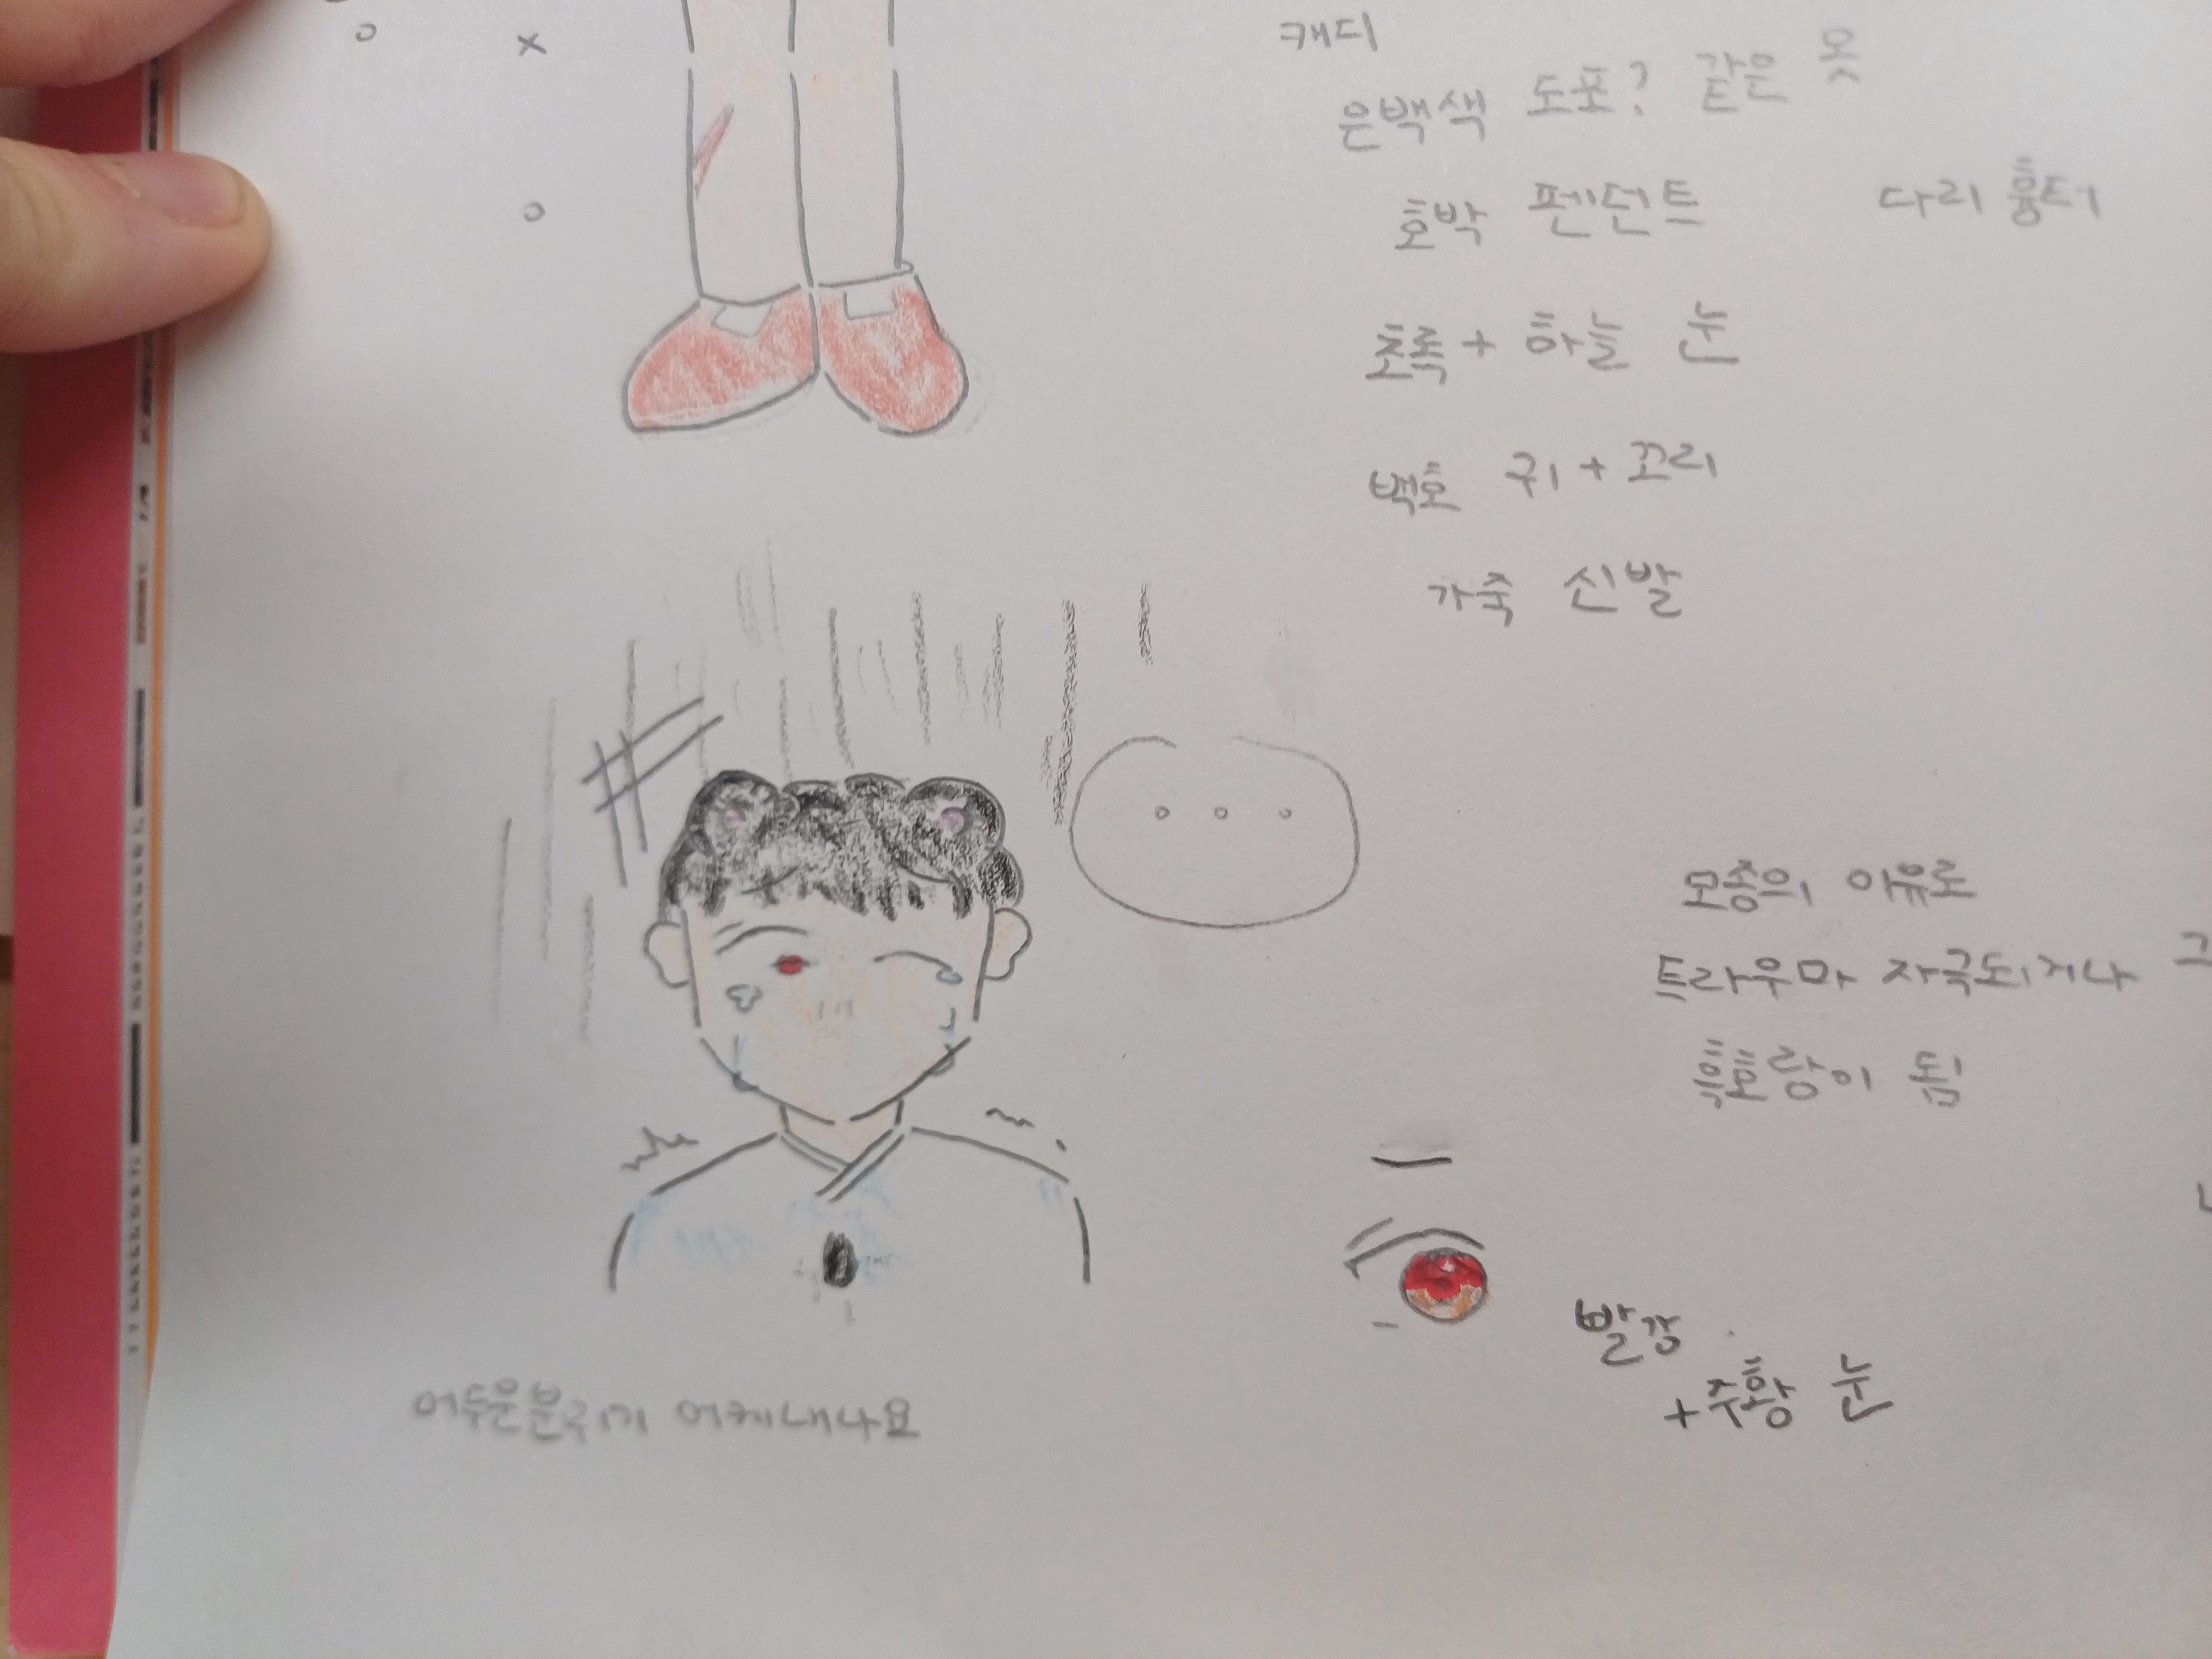 캐디
은백색 도포? 같은 옷
호박 펜던트 다리 흉터
초록 + 하늘 눈
백호 귀 + 꼬리
가죽 신발
모종의 이유로
트라우마 자극되거나 그
흑호랑이 됨
빨강
+주황 눈
어두운분위기 어케내나요